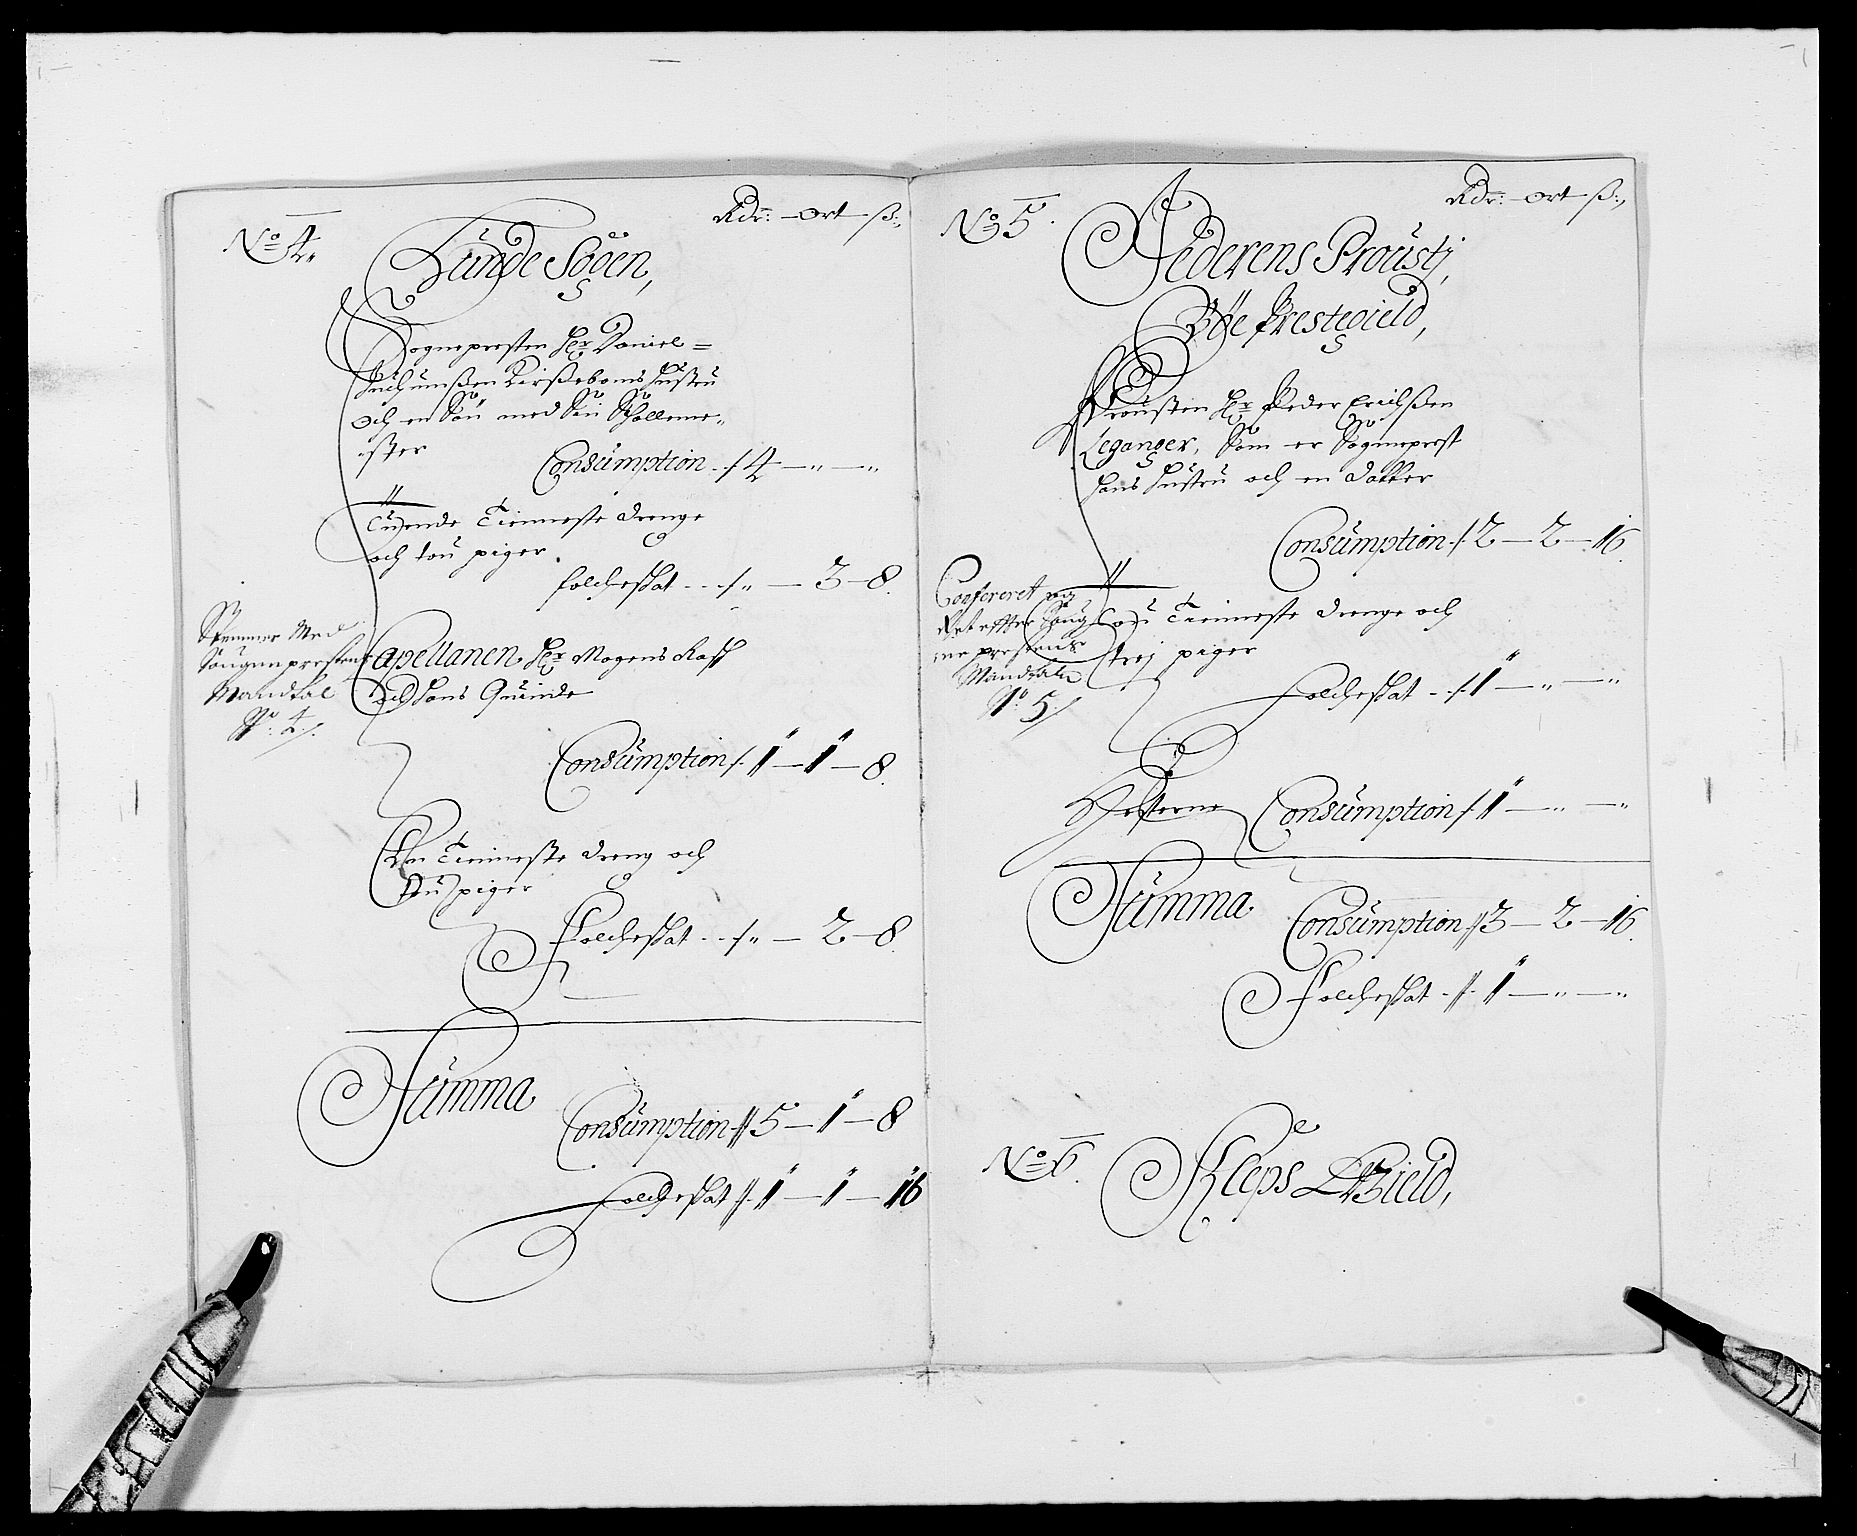 Rdr: – ort – ß:,
No 4.
Lunde Sogen,
Sogneprersten Hr Daniel =
Kirßeboms Hustru
och en Søn med Sin Scholleme„
ster
Consumption ./. 4 – „ – „
Tuende Tienneste drenge
och tou piger.
folcheskat . . ./. „ – 3 – 8.
Stemmer Med
Sougneprestens
Mandtal
No: 4/.
Capellanen Hr Mogens Rasch
och hans Quinde
Consumption ./. 1 – 1 – 8.
En Tienneste dreng och
Tou piger
Folcheskat . . ./. „ – 2 – 8.
Summa
Consumption // 5 – 1 – 8
Folcheskat // 1 – 1 – 16
Rdr: – ort – ß:,
No 5.
Jederens Proustj,
Bøe Prestegield,
Prousten Hr Peder Erichßen
Leganger, Som er Sogneprest
hans Hustru och en datter
Consumption ./. 2 – 2 – 16.
Confereret og
Ret effter Soug
ne prestens
Mandtal
No 5/
Tou Tienneste drenge och
trej piger
Folcheskat . ./. 1 – „ – „
Hesterne Consumption ./. 1 – „ – „
Summa Consumption // 3 – 2 – 16.
Folcheskat . // . 1 – „ – „
No 6.
Kleps Gield,